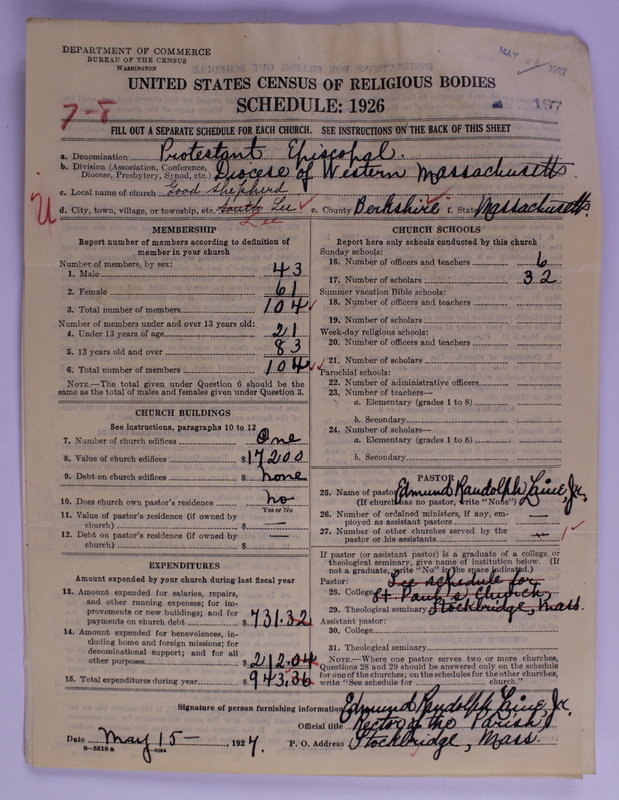 DEPARTMENT OF COMMERCE
BUREAU OF THE CENSUS
WASHINGTON
MAY 1927
UNITED STATES CENSUS OF RELIGIOUS BODIES
SCHEDULE: 1926
7-8
197
FILL OUT A SEPARATE SCHEDULE FOR EACH CHURCH. SEE INSTRUCTIONS ON THE BACK OF THIS SHEET
a. Denomination Protestant Episcopal.
b. Division (Association, Conference, Diocese, Presbytery, Synod, etc.) Diocese of Western Massachusetts
c. Local name of church Good Shepherd
U
d. City, town, village, or township, etc. South Lee e. County Berkshire f. State Massachusetts.
Lee
MEMBERSHIP
Report number of members according to definition of
member in your church
Number of members, by sex:
1. Male 43
2. Female 61
3. Total number of members 104
Number of members under and over 13 years old:
4. Under 13 years of age 21
5. 13 years old and over 83
6. Total number of members 104
NOTE.—The total given under Question 6 should be the
same as the total of males and females given under Question 3.
CHURCH BUILDINGS
See instructions, paragraphs 10 to 12
7. Number of church edifices One
8. Value of church edifices $17200
9. Debt on church edifices $ none
10. Does church own pastor's residence no
Yes or No
11. Value of pastor's residence (if owned by
church) $ —
12. Debt on pastor's residence (if owned by
church) $ —
EXPENDITURES
Amount expended by your church during last fiscal year
13. Amount expended for salaries, repairs,
and other running expenses; for im-
provements or new buildings; and for
payments on church debt $731.32
14. Amount expended for benevolences, in-
cluding home and foreign missions; for
denominational support; and for all
other purposes $212.04
15. Total expenditures during year $943.36
CHURCH SCHOOLS
Report here only schools conducted by this church
Sunday schools:
16. Number of officers and teachers 6
17. Number of scholars 32
Summer vacation Bible schools:
18. Number of officers and teachers
19. Number of scholars
Week-day religious schools:
20. Number of officers and teachers
21. Number of scholars
Parochial schools:
22. Number of administrative officers
23. Number of teachers—
a. Elementary (grades 1 to 8)
b. Secondary
24. Number of scholars—
a. Elementary (grades 1 to 8)
b. Secondary
PASTOR
25. Name of pastor Edmund Randolph Laine, Jr.
(If church has no pastor, write "None")
26. Number of ordained ministers, if any, em-
ployed as assistant pastors —
27. Number of other churches served by the
pastor or his assistants 1
If pastor (or assistant pastor) is a graduate of a college or
theological seminary, give name of institution below. (If
not a graduate, write "No" in the space indicated.)
Pastor: See schedule for
28. College St. Paul's Church,
29. Theological seminary Stockbridge, Mass.
Assistant pastor:
30. College
31. Theological seminary
NOTE.—Where one pastor serves two or more churches,
Questions 28 and 29 should be answered only on the schedule
for one of the churches; on the schedules for the other churches,
write "See schedule for church."
Signature of person furnishing information Edmund Randolph Laine, Jr.
Official title Rector of the Parish
Date May 15 - , 1927. P. O. Address Stockbridge, Mass.
8—5518a